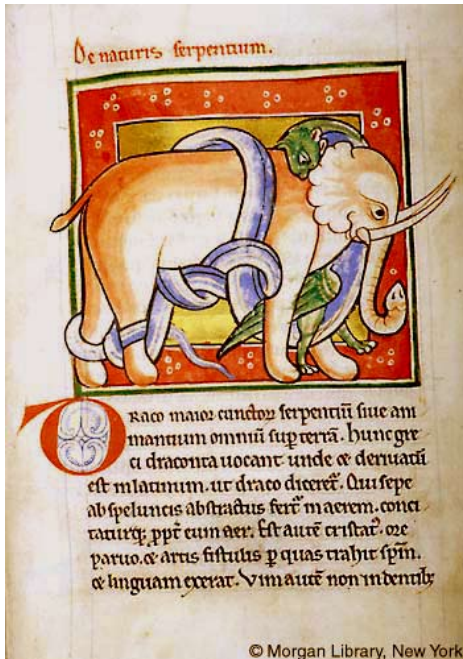 De naturis serpentium.
DRaco maior cunctoꝝ serpentiũ siue ani
mantium omniũ suꝑ terrã. hunc gre
ci draconta uocant. unde ⁊ deriuatũ
est in latinum. ut draco diceret᷑. Qui sepe
ab speluncis abstractus fert᷑ in aerem. conci
taturqꝫ ꝓpt̕ eum aer. Est autẽ cristatꝰ. ore
paruo. ⁊ artis fistulis ꝑ quas trahit sp̃m.
⁊ linguam exerat. Vim autẽ non in dentibꝫ
© Morgan Library, New York